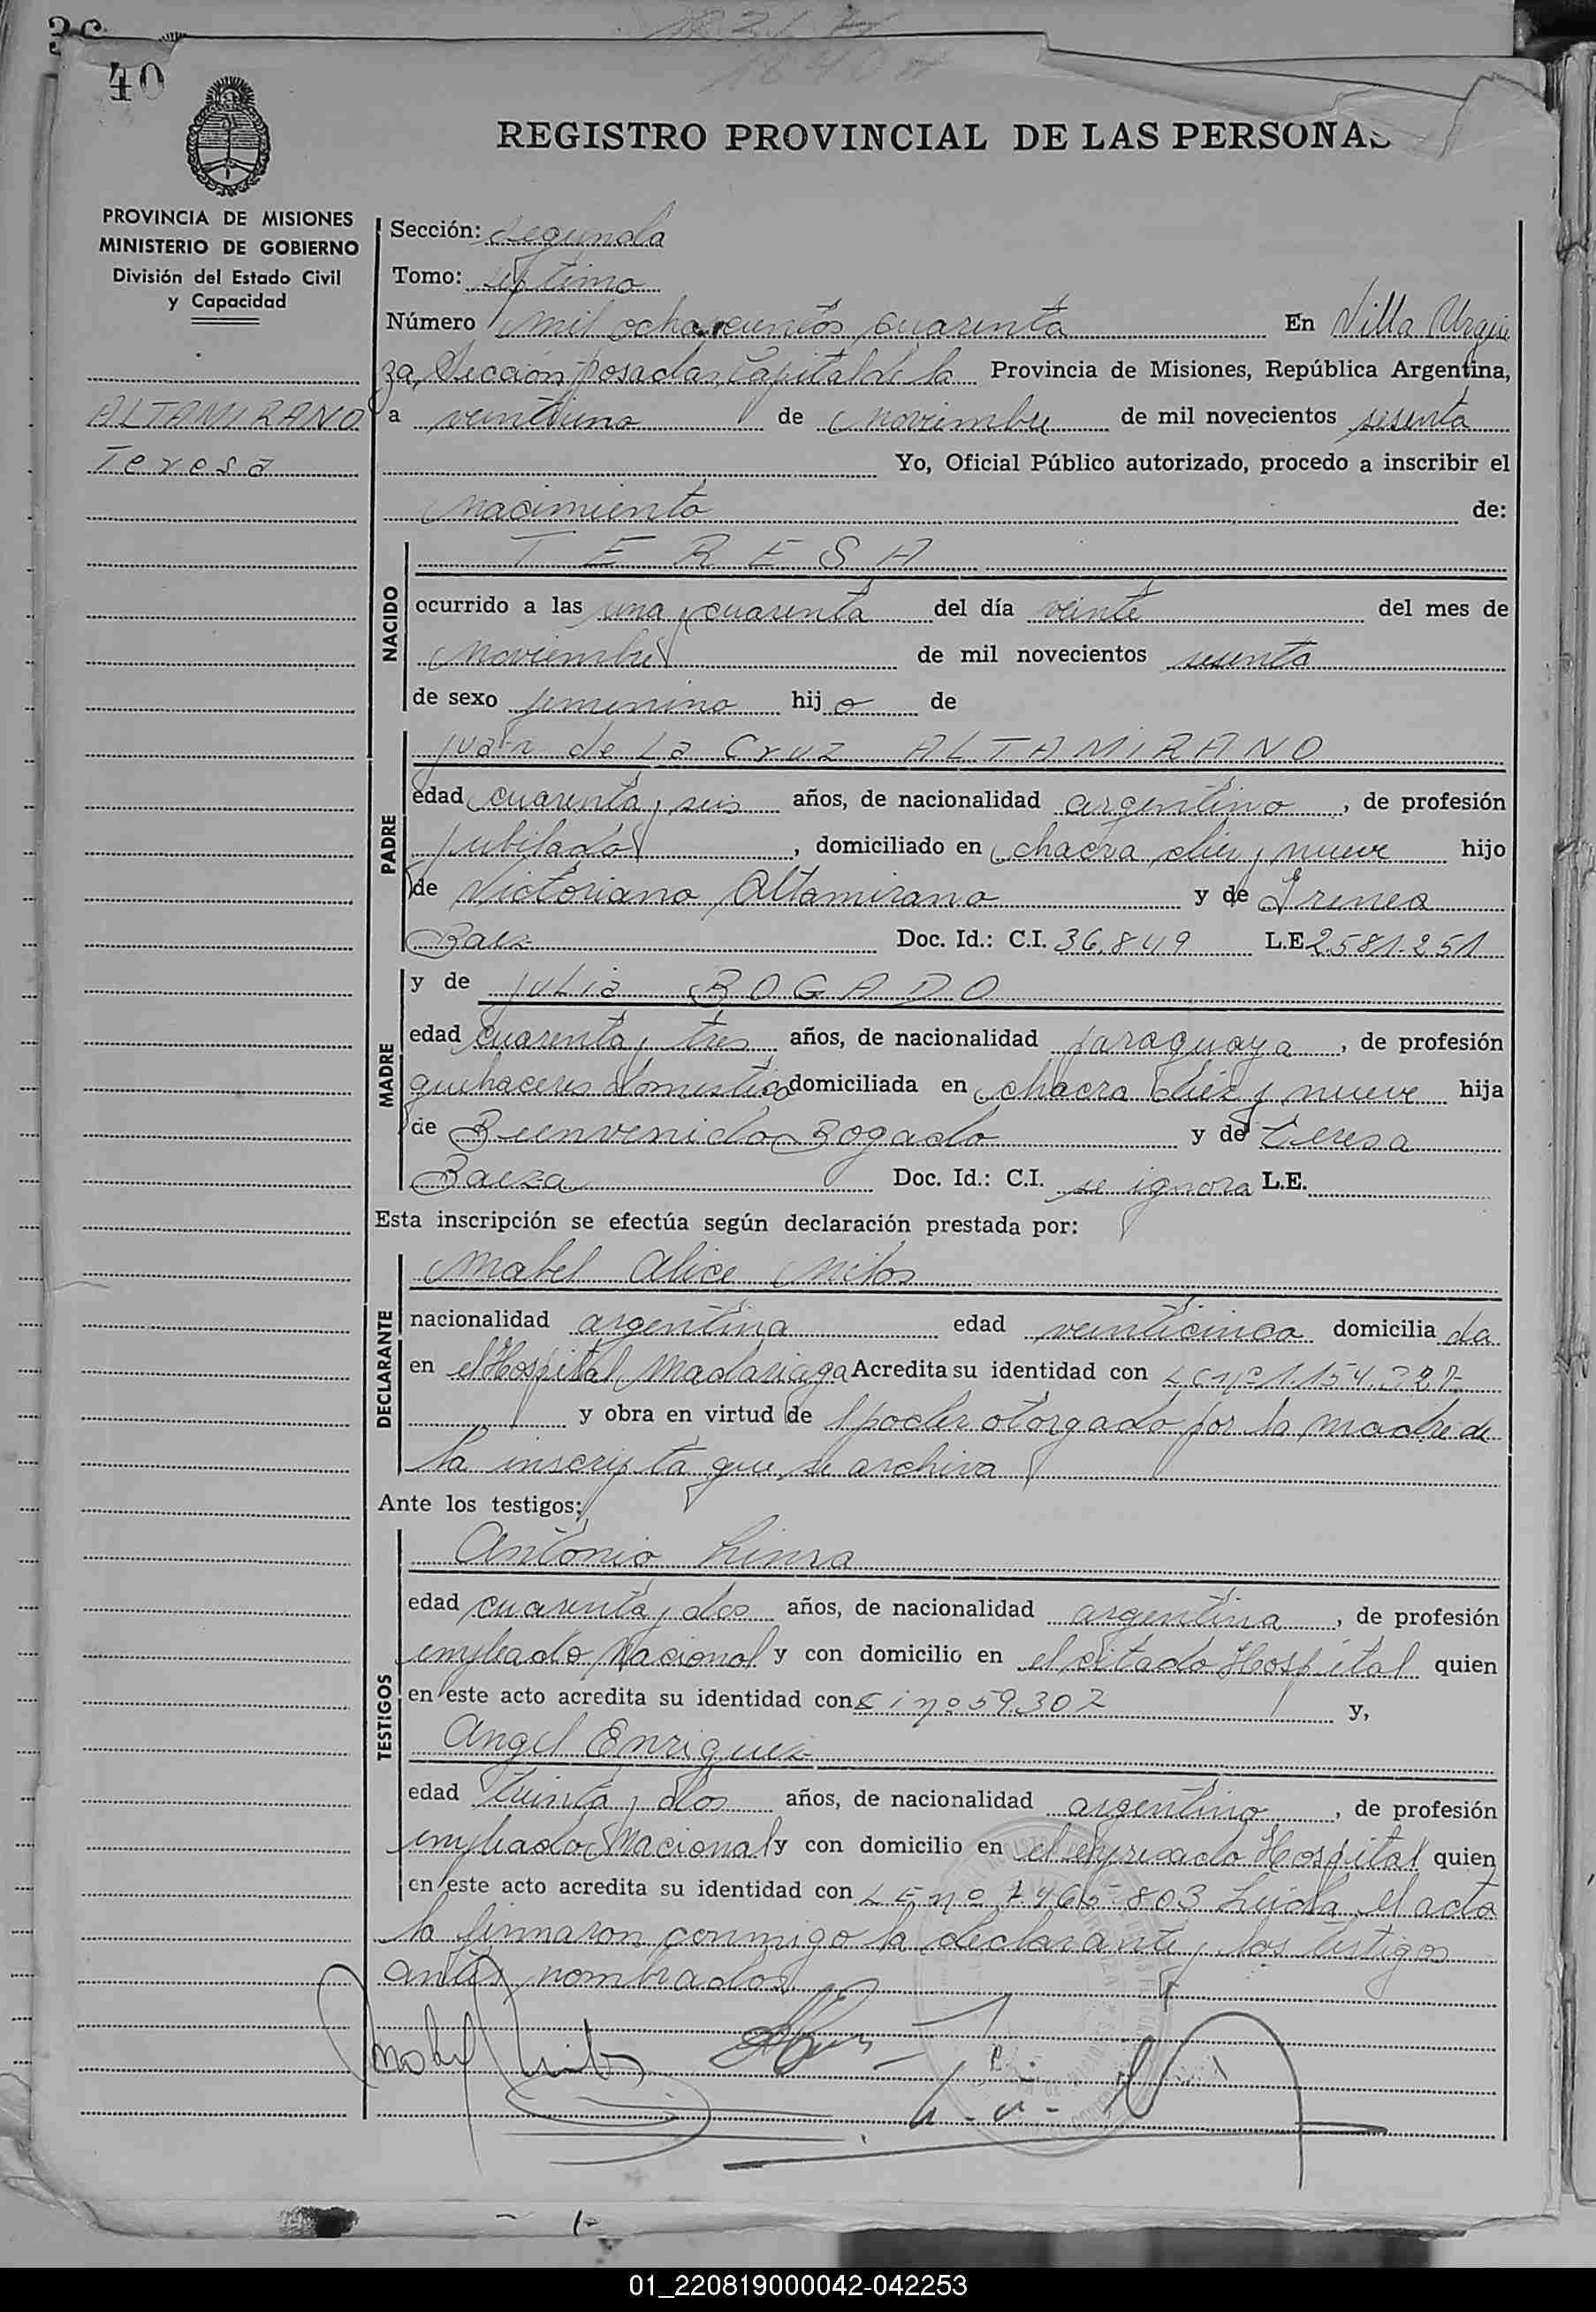 40
REGISTRO PROVINCIAL DE LAS PERSONAS
PROVINCIA DE MISIONES
MINISTERIO DE GOBIERNO
División del Estado Civil
y Capacidad
ALTAMIRANO
Teresa
Sección: segunda
Tomo: séptimo
Número mil ochocientos cuarenta En Villa Urqui
za, Sección Posadas, Capital de la Provincia de Misiones, República Argentina,
a veintiuno de noviembre de mil novecientos sesenta
Yo, Oficial Público autorizado, procedo a inscribir el
nacimiento de:
NACIDO
TERESA
ocurrido a las una y cuarenta del día veinte del mes de
noviembre de mil novecientos sesenta
de sexo femenino hij a de
PADRE
Juan de La Cruz ALTAMIRANO
edad cuarenta y seis años, de nacionalidad argentino, de profesión
jubilado, domiciliado en chacra diez y nueve hijo
de Victoriano Altamirano y de Irenea
Baez Doc. Id.: C.I. 36.849 L.E 2.581.251
MADRE
y de Julia BOGADO
edad cuarenta y tres años, de nacionalidad paraguaya, de profesión
quehaceres domestico domiciliada en chacra diez y nueve hija
de Buenvenido Bogado y de teresa
Baeza Doc. Id.: C.I. se ignora L.E.
Esta inscripción se efectúa según declaración prestada por:
DECLARANTE
Mabel Alice Milos
nacionalidad argentina edad veinticinco domicilia da
en el Hospital Madariaga Acredita su identidad con L C nº 1.154.227
y obra en virtud de l poder otorgado por la madre de
la inscripta que se archiva
Ante los testigos:
TESTIGOS
Antonio
edad cuarenta y dos años, de nacionalidad argentina, de profesión
empleado Nacional y con domicilio en el citado Hospital quien
en este acto acredita su identidad con c i nº 59.302 y,
Angel Enriquez
edad treinta y dos años, de nacionalidad argentino, de profesión
empleado Nacional y con domicilio en el expresado Hospital quien
en este acto acredita su identidad con L E nº 7.465.803 Leida el acta
la firmaron conmigo la declarante y los testigos
antes nombrados
01_220819000042-042253